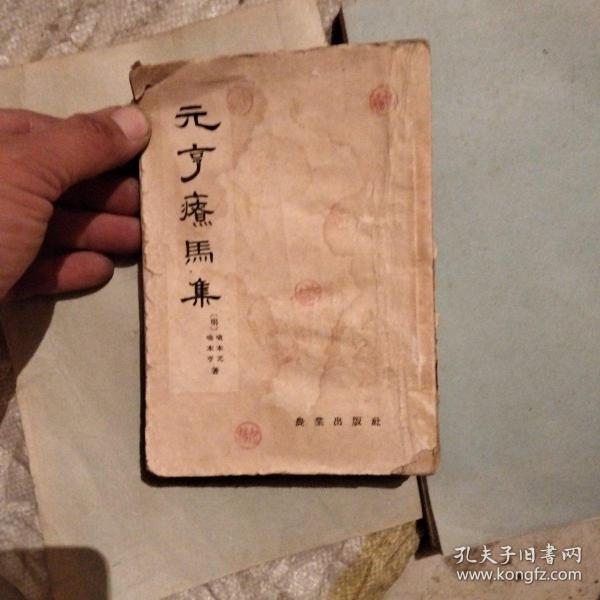 元亨療馬集
〔明〕喻本元
喻本亨 著
農業出版社
孔夫子旧書网
www.kongfz.com